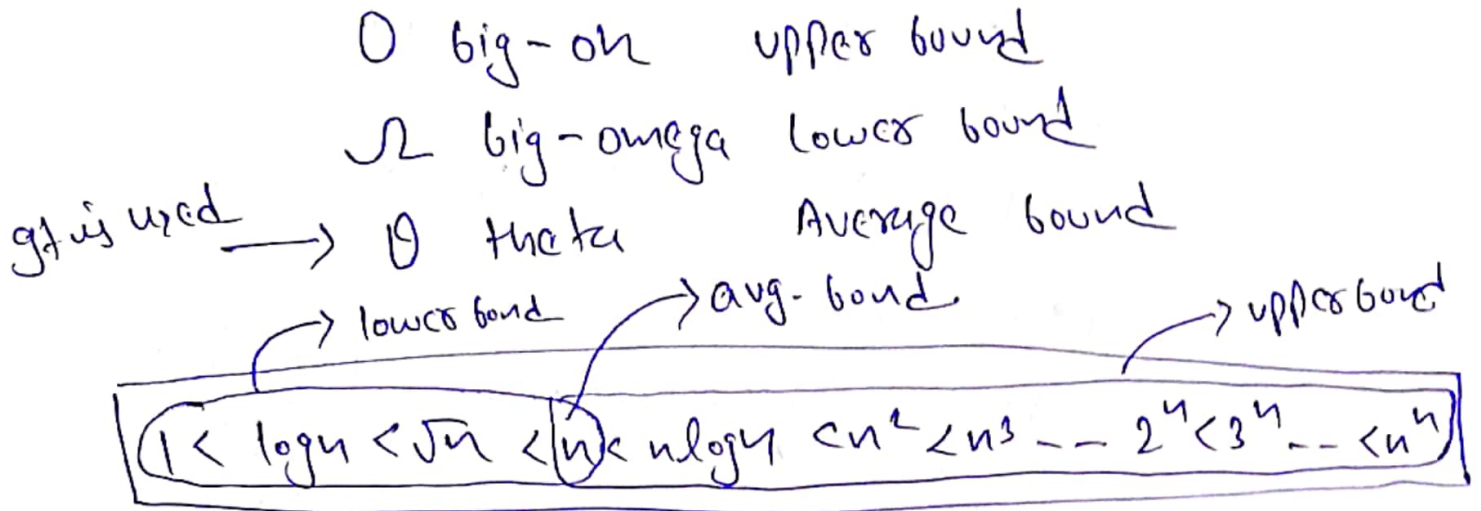 O big-oh upper bound
Ω big-omega lower bound
It is used → θ theta Average bound
→ lower bond → avg. bond → upper bond
1 < log n < √n < n < n log n < n² < n³ -- 2ⁿ < 3ⁿ -- < nⁿ